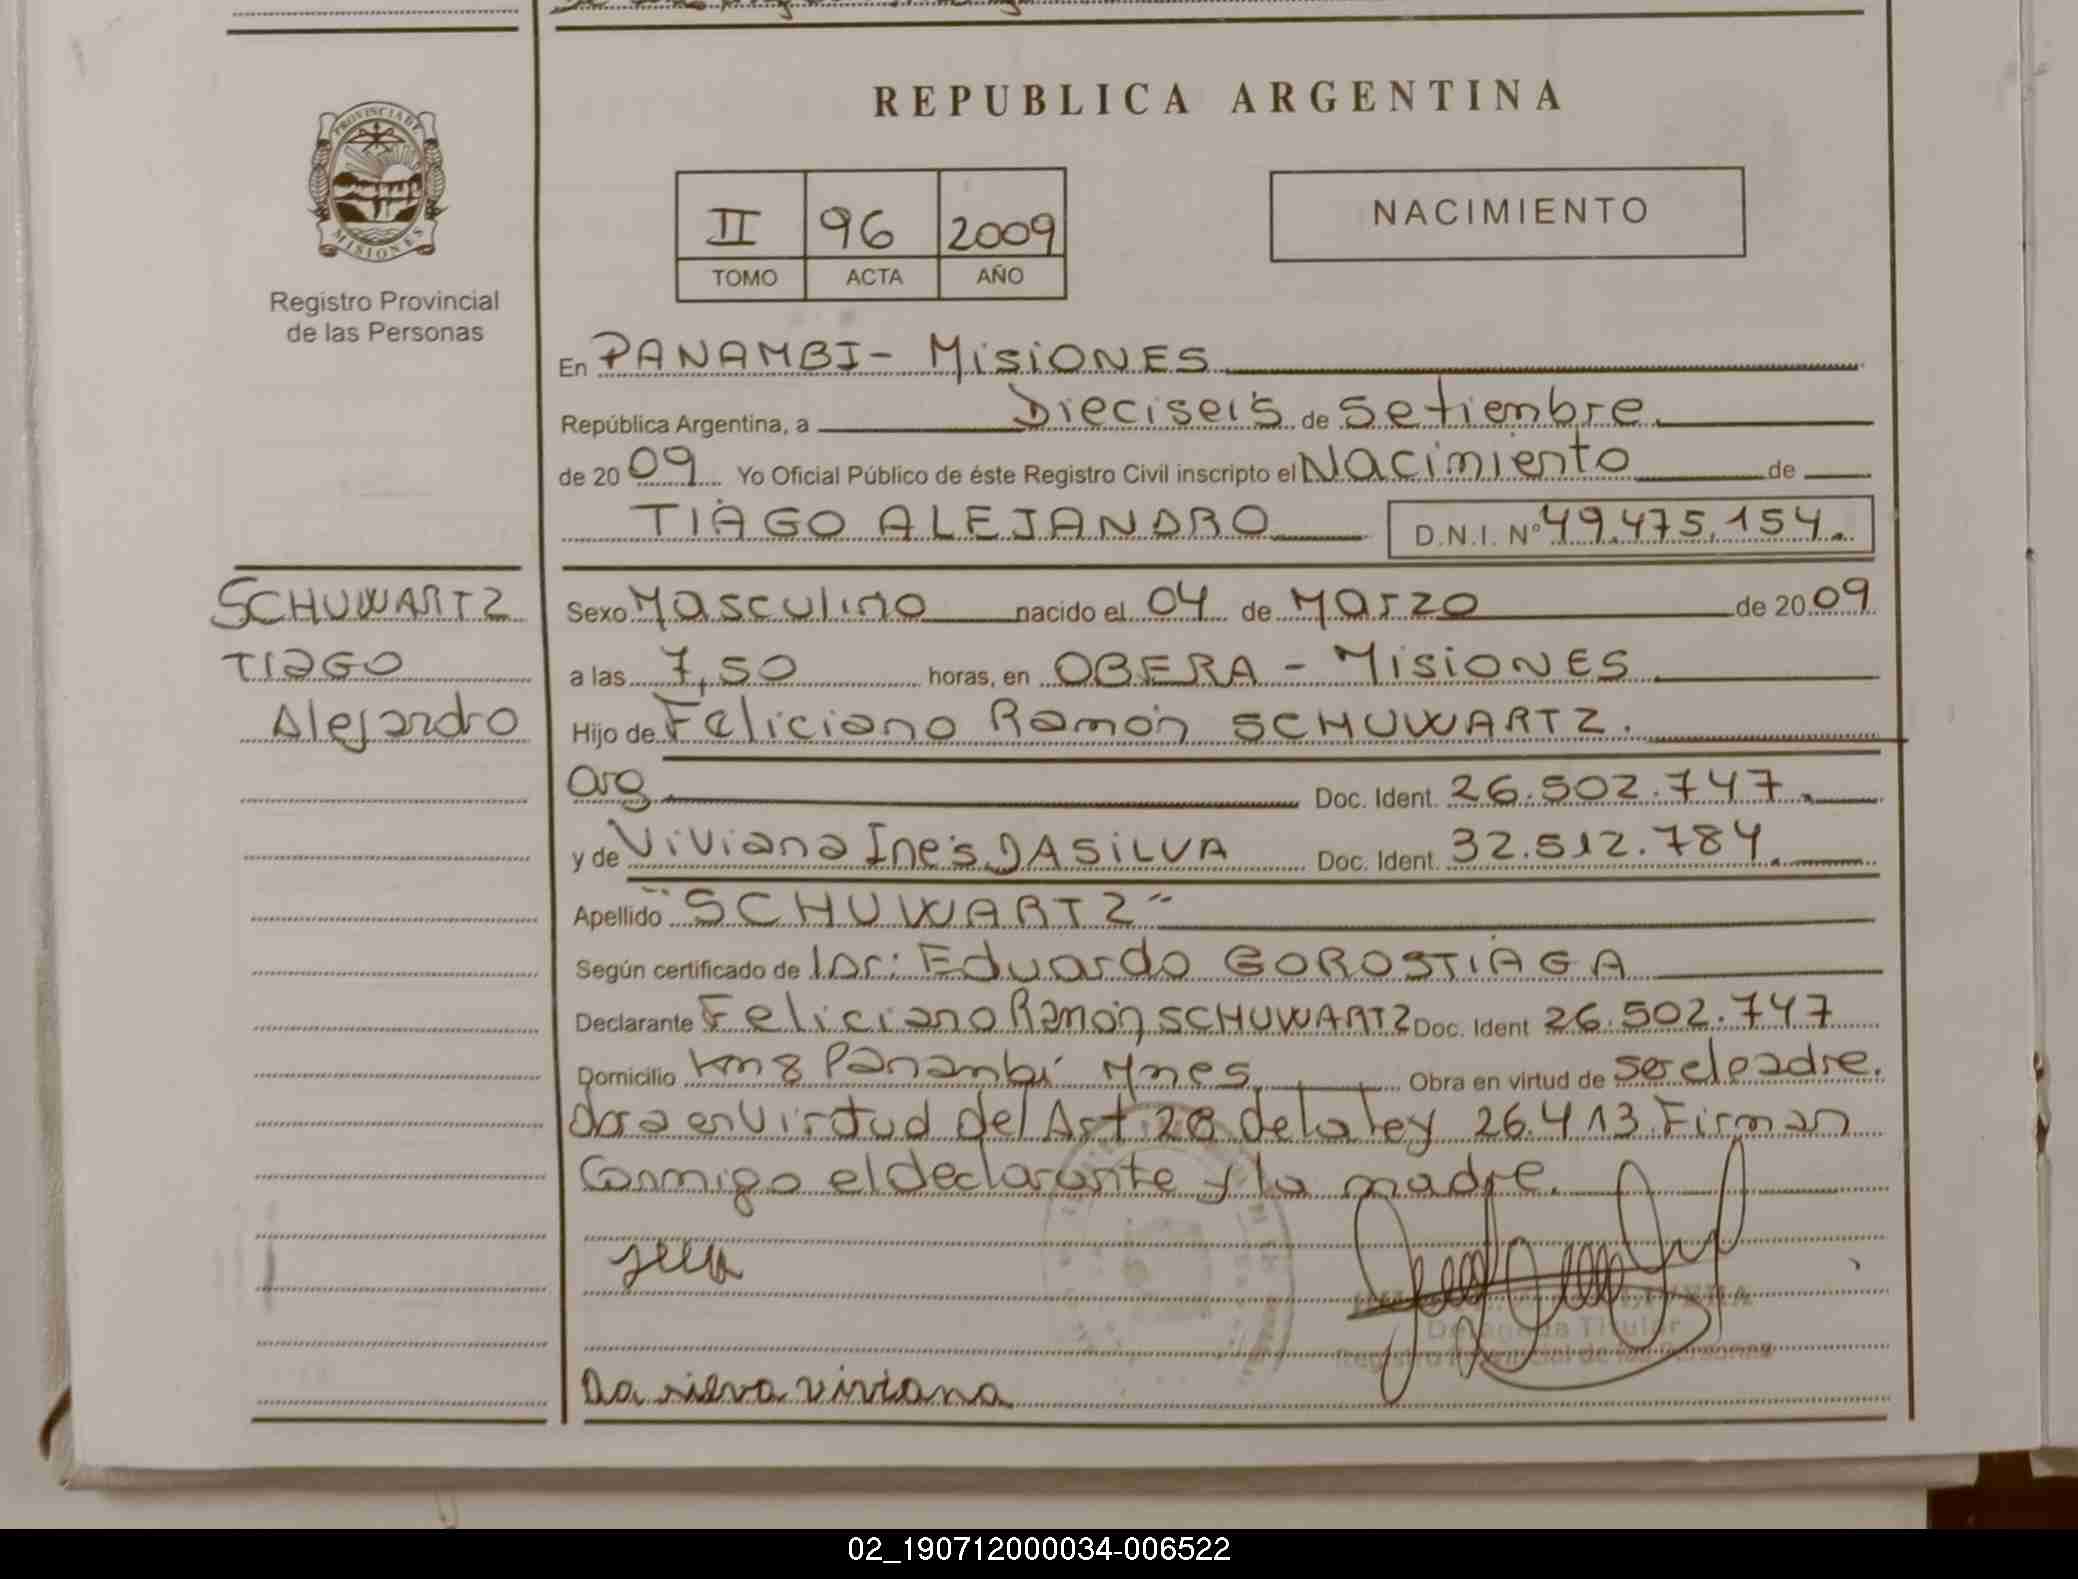 REPUBLICA ARGENTINA
PROVINCIA DE
MISIONES
Registro Provincial
de las Personas
II 96 2009
TOMO ACTA AÑO
NACIMIENTO
En PANAMBI - MISIONES
República Argentina, a Dieciseis de Setiembre
de 2009 Yo Oficial Público de éste Registro Civil inscripto el Nacimiento de
TIAGO ALEJANDRO D.N.I. Nº 49.475.154.
SCHUWARTZ
TIAGO
Alejandro
Sexo Masculino nacido el 04 de Marzo de 2009
a las 7,50 horas, en OBERA - MISIONES
Hijo de Feliciano Ramón SCHUWARTZ.
arg Doc. Ident. 26.502.747.
y de Viviana Inés DA SILVA Doc. Ident. 32.512.784.
Apellido "SCHUWARTZ"
Según certificado de Dr: Eduardo GOROSTIAGA
Declarante Feliciano Ramón SCHUWARTZ Doc. Ident 26.502.747
Domicilio Km 8 Panambí Mnes Obra en virtud de ser el padre.
Obra en virtud del Art 28 de la ley 26.413. Firman
Conmigo el declarante y la madre.
Titular
Registro Provincial de las Personas
Da silva viviana
02_190712000034-006522